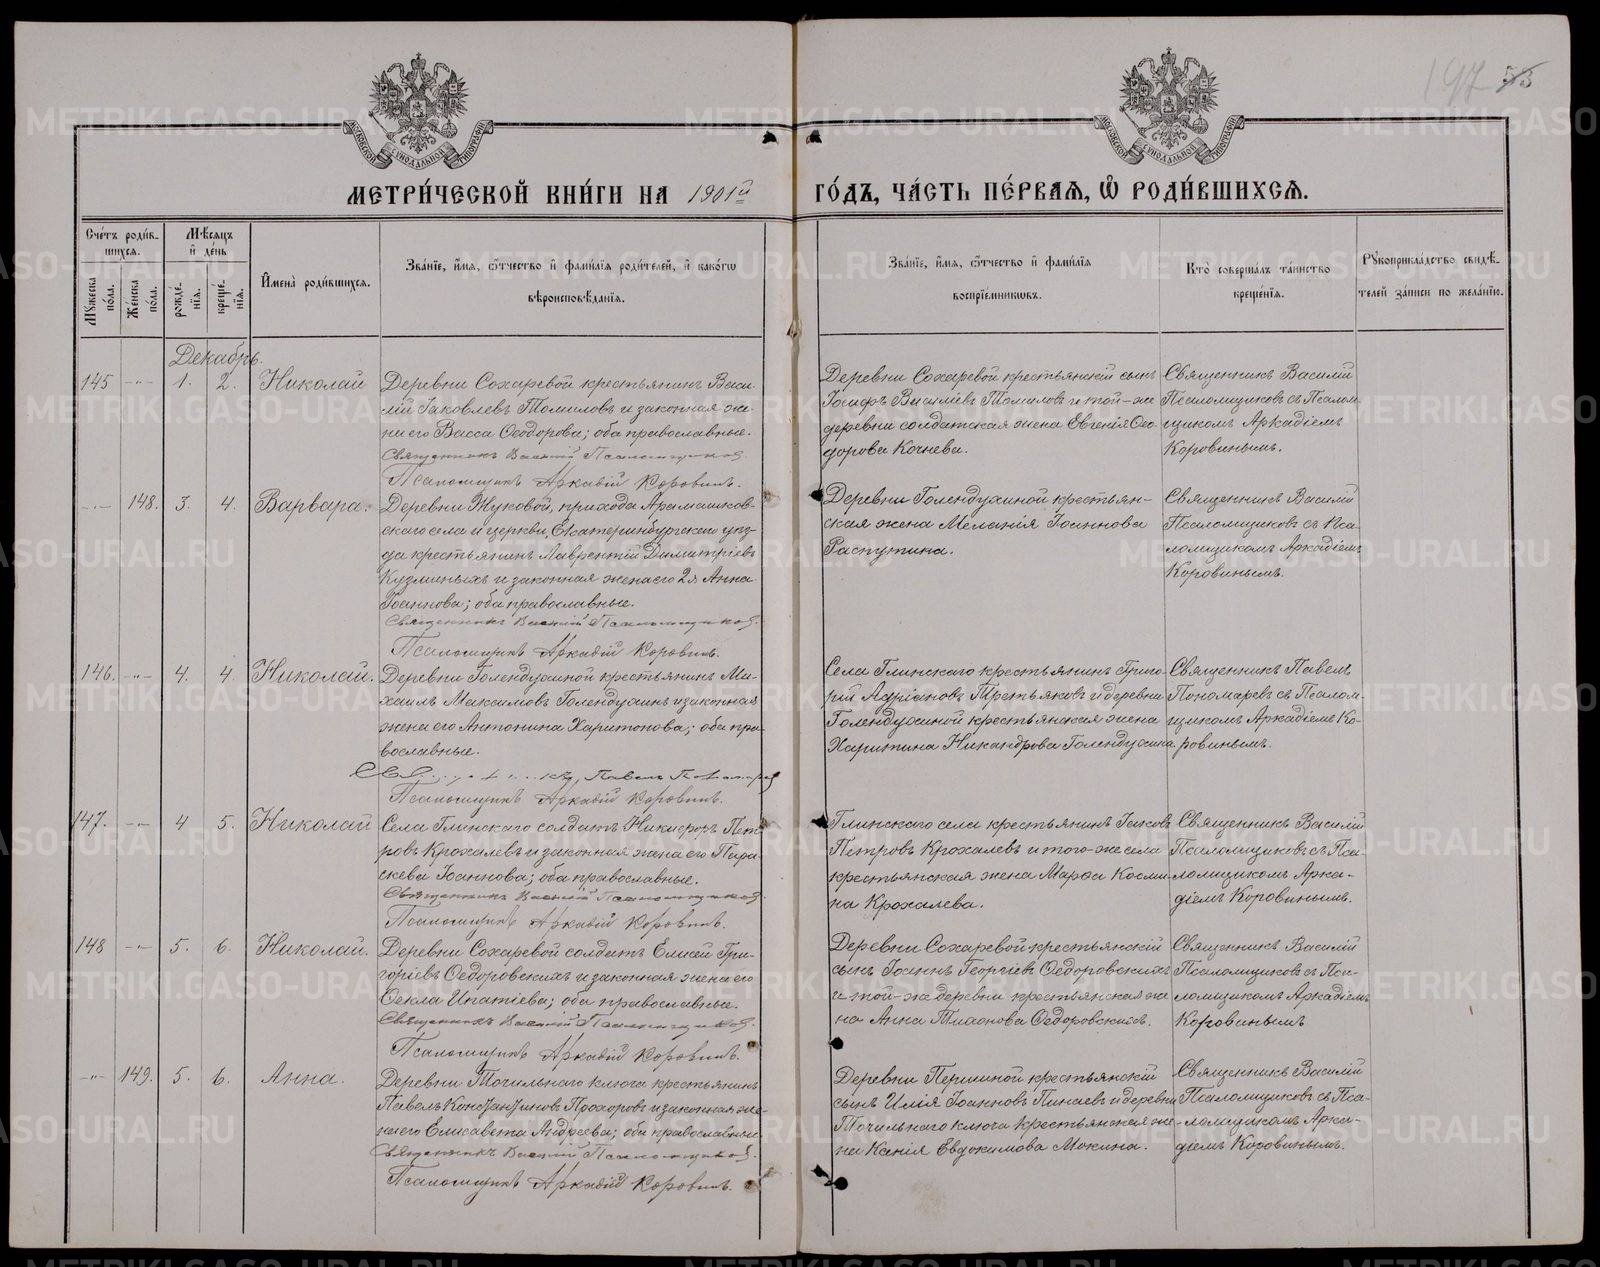 197 53
МОСКОВСКОЙ СѴНОДАЛЬНОЙ ТИПОГРАФІИ
МОСКОВСКОЙ СѴНОДАЛЬНОЙ ТИПОГРАФІИ
МЕТРИ́ЧЕСКОЙ КНИ́ГИ НА 1901й ГО́ДЪ, ЧА́СТЬ ПЕ́РВАѦ, Ѡ҆ РОДИ́ВШИХСѦ.
Сче́тъ роди́в-
шихсѧ.
Мѣ́сѧцъ
и҆ де́нь
Мꙋ́жеска по́ла.
Же́нска по́ла.
рожде́-нїѧ.
креще́-нїѧ.
И҆мена̀ роди́вшихсѧ.
Зва́нїе, и҆́мѧ, ѻ҆́тчество и҆ фами́лїѧ роди́телей, и҆ како́гѡ
вѣроисповѣ́данїѧ.
Зва́нїе, и҆́мѧ, ѻ҆́тчество и҆ фами́лїѧ
воспрїе́мникѡвъ.
Кто̀ соверша́лъ та́инство
креще́нїѧ.
Рꙋкоприкла́дство свидѣ́-
телей за́писи по жела́нїю.
Декабрь.
145 -"- 1. 2. Николай
Деревни Сохаревой крестьянинъ Васи-
лій Іаковлевъ Томиловъ и законная же-
на его Васса Ѳеодорова; оба православные.
Священникъ Василій Псаломщиковъ.
Псаломщикъ Аркадій Коровинъ.
Деревни Сохаревой крестьянскій сынъ
Іосифъ Василіевъ Томиловъ и той-же
деревни солдатская жена Евгенія Ѳео-
дорова Кочнева.
Священникъ Василій
Псаломщиковъ съ Псалом-
щикомъ Аркадіемъ
Коровинымъ.
-"- 148. 3. 4. Варвара.
Деревни Жуковой, прихода Арамашков-
скаго села и церкви, Екатеринбургскаго уѣз-
да крестьянинъ Лаврентій Димитріевъ
Кузминыхъ и законная жена его 2я Анна
Іоаннова; оба православные.
Священникъ Василій Псаломщиковъ.
Псаломщикъ Аркадій Коровинъ.
Деревни Голендухиной крестьян-
ская жена Меланія Іоаннова
Распутина.
Священникъ Василій
Псаломщиковъ съ Пса-
ломщикомъ Аркадіемъ
Коровинымъ.
146. -"- 4. 4. Николай.
Деревни Голендухиной крестьянинъ Ми-
хаилъ Максимовъ Голендухинъ и законная
жена его Антонина Харитонова; оба пра-
вославные.
Священникъ, Павелъ Пономаревъ
Псаломщикъ Аркадій Коровинъ.
Села Глинскаго крестьянинъ Григо-
рій Адріановъ Третьяковъ и деревни
Голендухиной крестьянская жена
Харитина Никандрова Голендухина.
Священникъ Павелъ
Пономаревъ съ Псалом-
щикомъ Аркадіемъ Ко-
ровинымъ.
147. -"- 4 5. Николай
Села Глинскаго солдатъ Никифоръ Пет-
ровъ Крохалевъ и законная жена его Пара-
скева Іоаннова; оба православные.
Священникъ Василій Псаломщиковъ
Псаломщикъ Аркадій Коровинъ.
Глинскаго села крестьянинъ Іаковъ
Петровъ Крохалевъ и того-же села
крестьянская жена Марѳа Косми-
на Крохалева.
Священникъ Василій
Псаломщиковъ съ Пса-
ломщикомъ Арка-
діемъ Коровинымъ.
148 -"- 5. 6. Николай.
Деревни Сохаревой солдатъ Елисей Гри-
горіевъ Ѳедоровскихъ и законная жена его
Ѳекла Ипатіева; оба православные.
Священникъ Василій Псаломщиковъ.
Псаломщикъ Аркадій Коровинъ.
Деревни Сохаревой крестьянскій
сынъ Іоаннъ Георгіевъ Ѳедоровскихъ
и той-же деревни крестьянская же-
на Анна Тихонова Ѳедоровскихъ.
Священникъ Василій
Псаломщиковъ съ Пса-
ломщикомъ Аркадіемъ
Коровинымъ
-"- 149. 5. 6. Анна.
Деревни Точильнаго ключа крестьянинъ
Павелъ Константиновъ Прохоровъ и законная же-
на его Елисавета Андреева; оба православные
Священникъ Василій Псаломщиковъ.
Псаломщикъ Аркадій Коровинъ.
Деревни Першиной крестьянскій
сынъ Илія Іоанновъ Пинаевъ и деревни
Точильнаго ключа крестьянская же-
на Ксенія Евдокимова Мокина.
Священникъ Василій
Псаломщиковъ съ Пса-
ломщикомъ Арка-
діемъ Коровинымъ.
METRIKI.GASO-URAL.RU